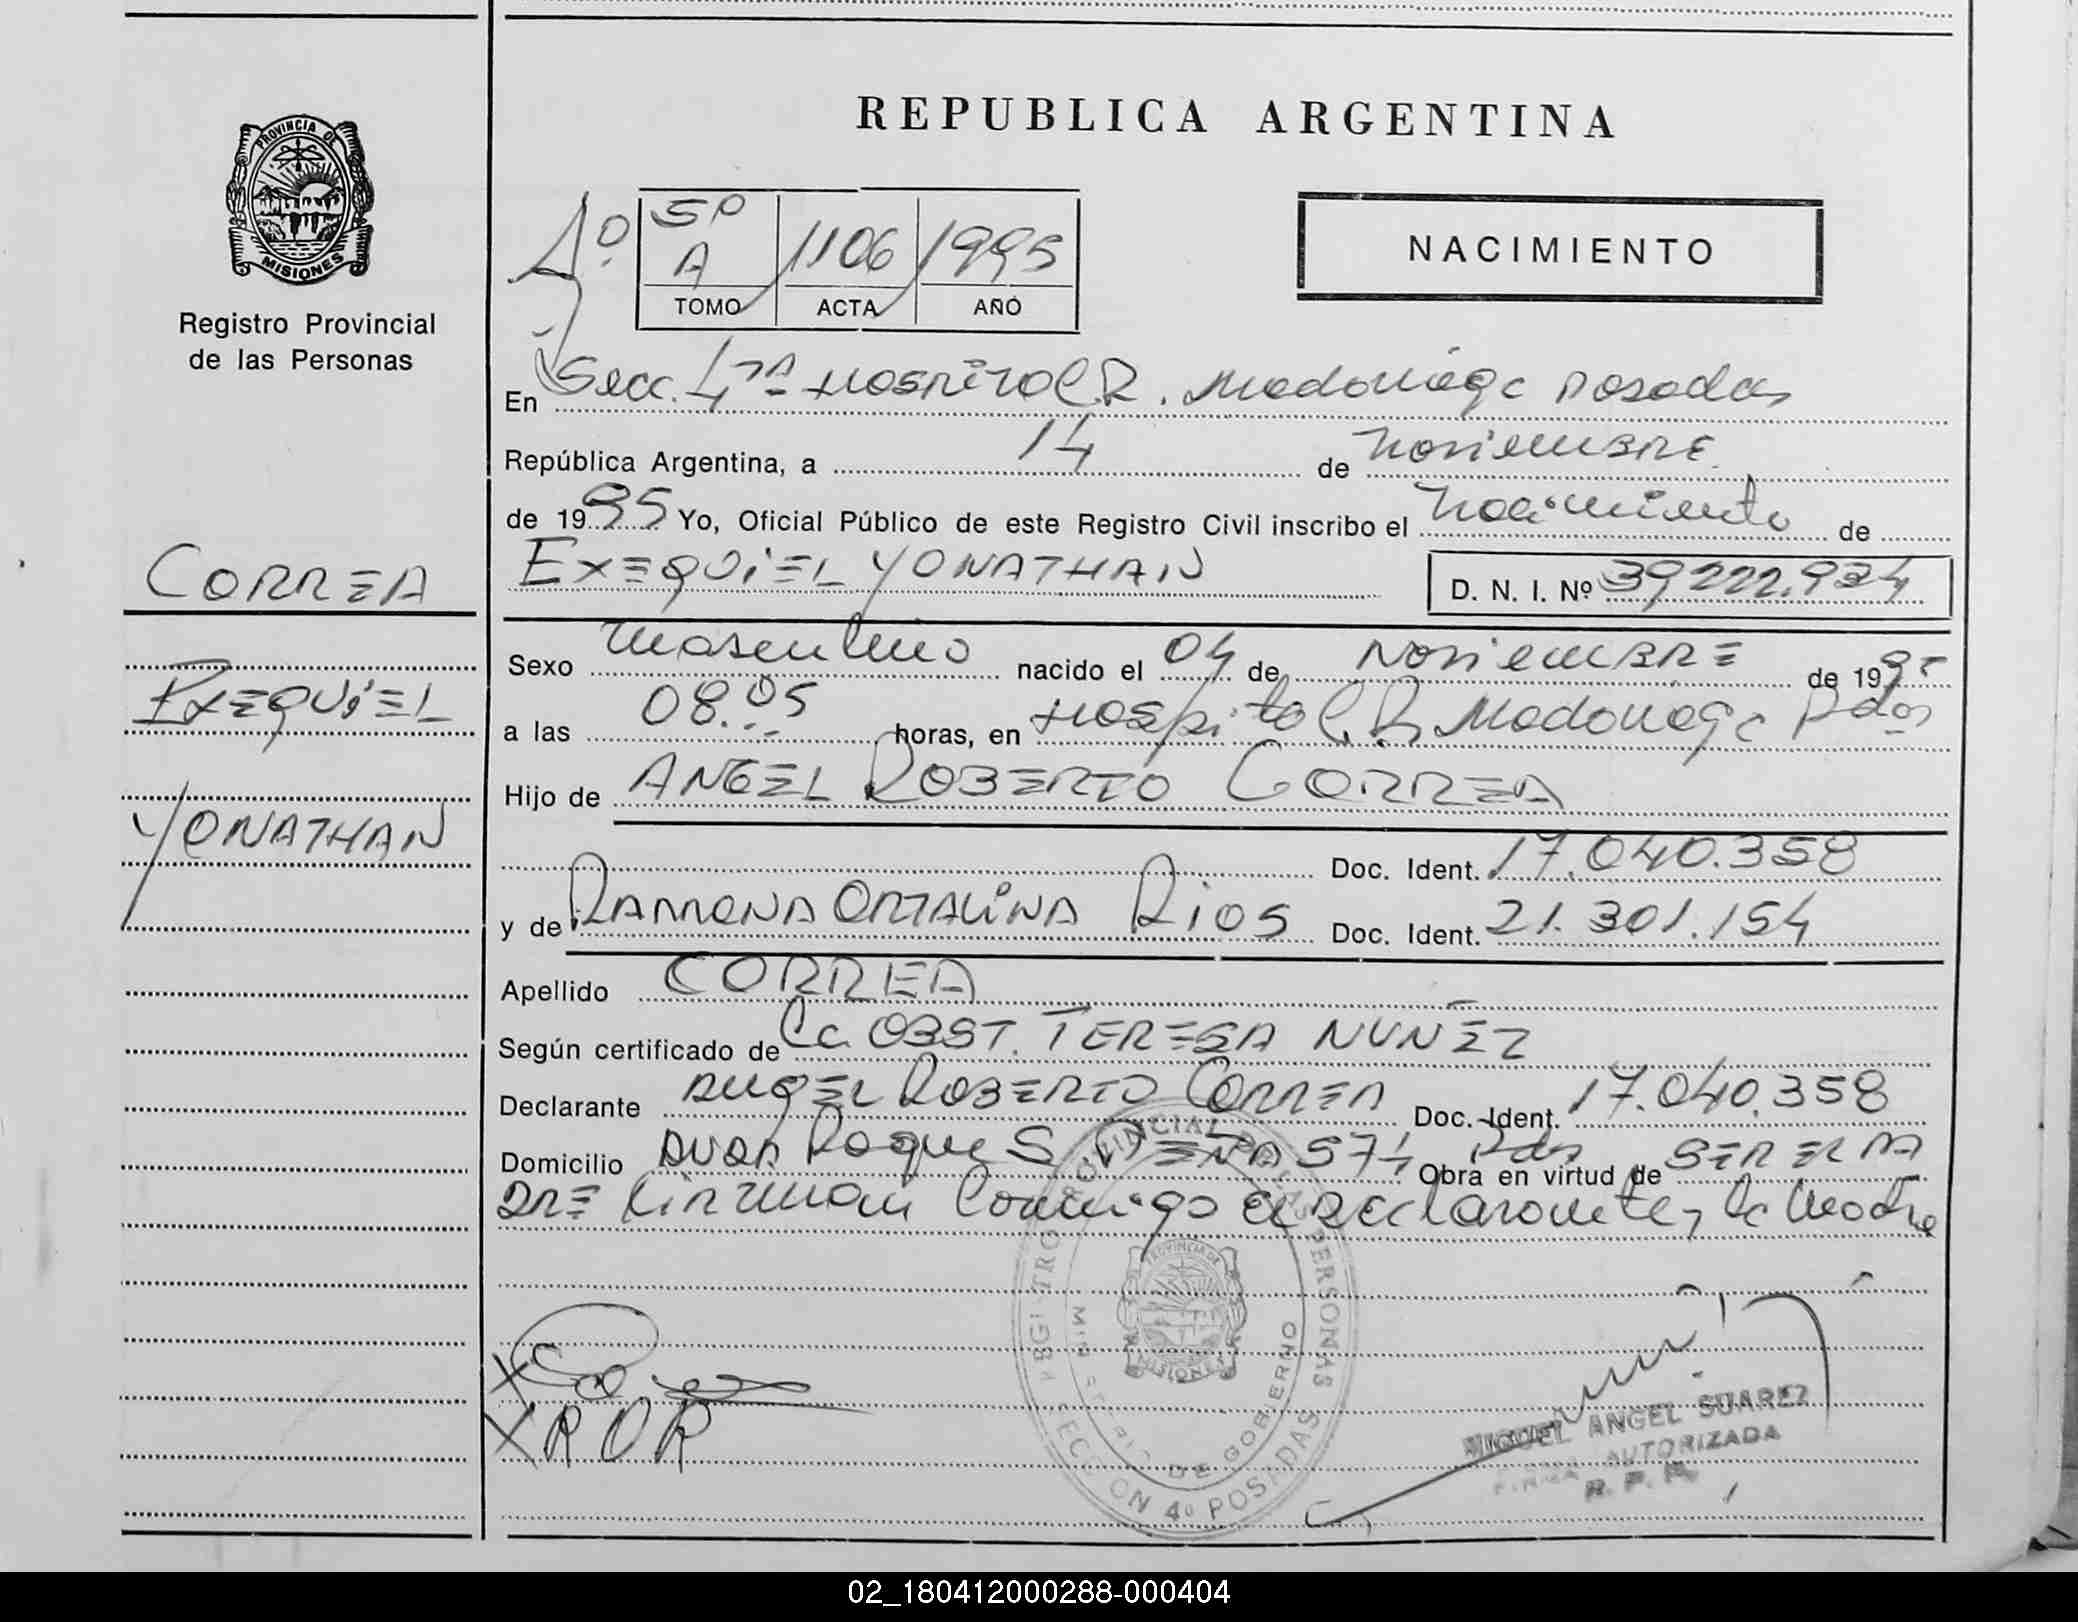 REPUBLICA ARGENTINA
PROVINCIA DE
MISIONES
Registro Provincial
de las Personas
Aº
5º
A 1106 1995
TOMO ACTA AÑO
NACIMIENTO
En Secc. 4ta Hospital R. Madariaga Posadas
República Argentina, a 14 de Noviembre
de 1995 Yo, Oficial Público de este Registro Civil inscribo el Nacimiento de
EXEQUIEL YONATHAN
D. N. I. Nº 39222.934
CORREA
EXEQUIEL
YONATHAN
Sexo masculino nacido el 04 de Noviembre de 1995
a las 08.05 horas, en Hospital R. Madariaga Pdas
Hijo de ANGEL ROBERTO CORREA
Doc. Ident. 17.040.358
y de RAMONA ORTALINA RIOS Doc. Ident. 21.301.154
Apellido CORREA
Según certificado de La OBST. TERESA NUÑEZ
Declarante ANGEL ROBERTO CORREA Doc. Ident. 17.040.358
Domicilio Avda Roque S. PEÑA 574 Pdas Obra en virtud de SER EL PA
DRE Firman Conmigo el declarante y la Madre
REGISTRO PROVINCIAL DE LAS PERSONAS
MINISTERIO DE GOBIERNO
PROVINCIA DE
MISIONES
SECCION 4º POSADAS
X
X ROR
MIGUEL ANGEL SUAREZ
FIRMA AUTORIZADA
R. P. P.
02_180412000288-000404